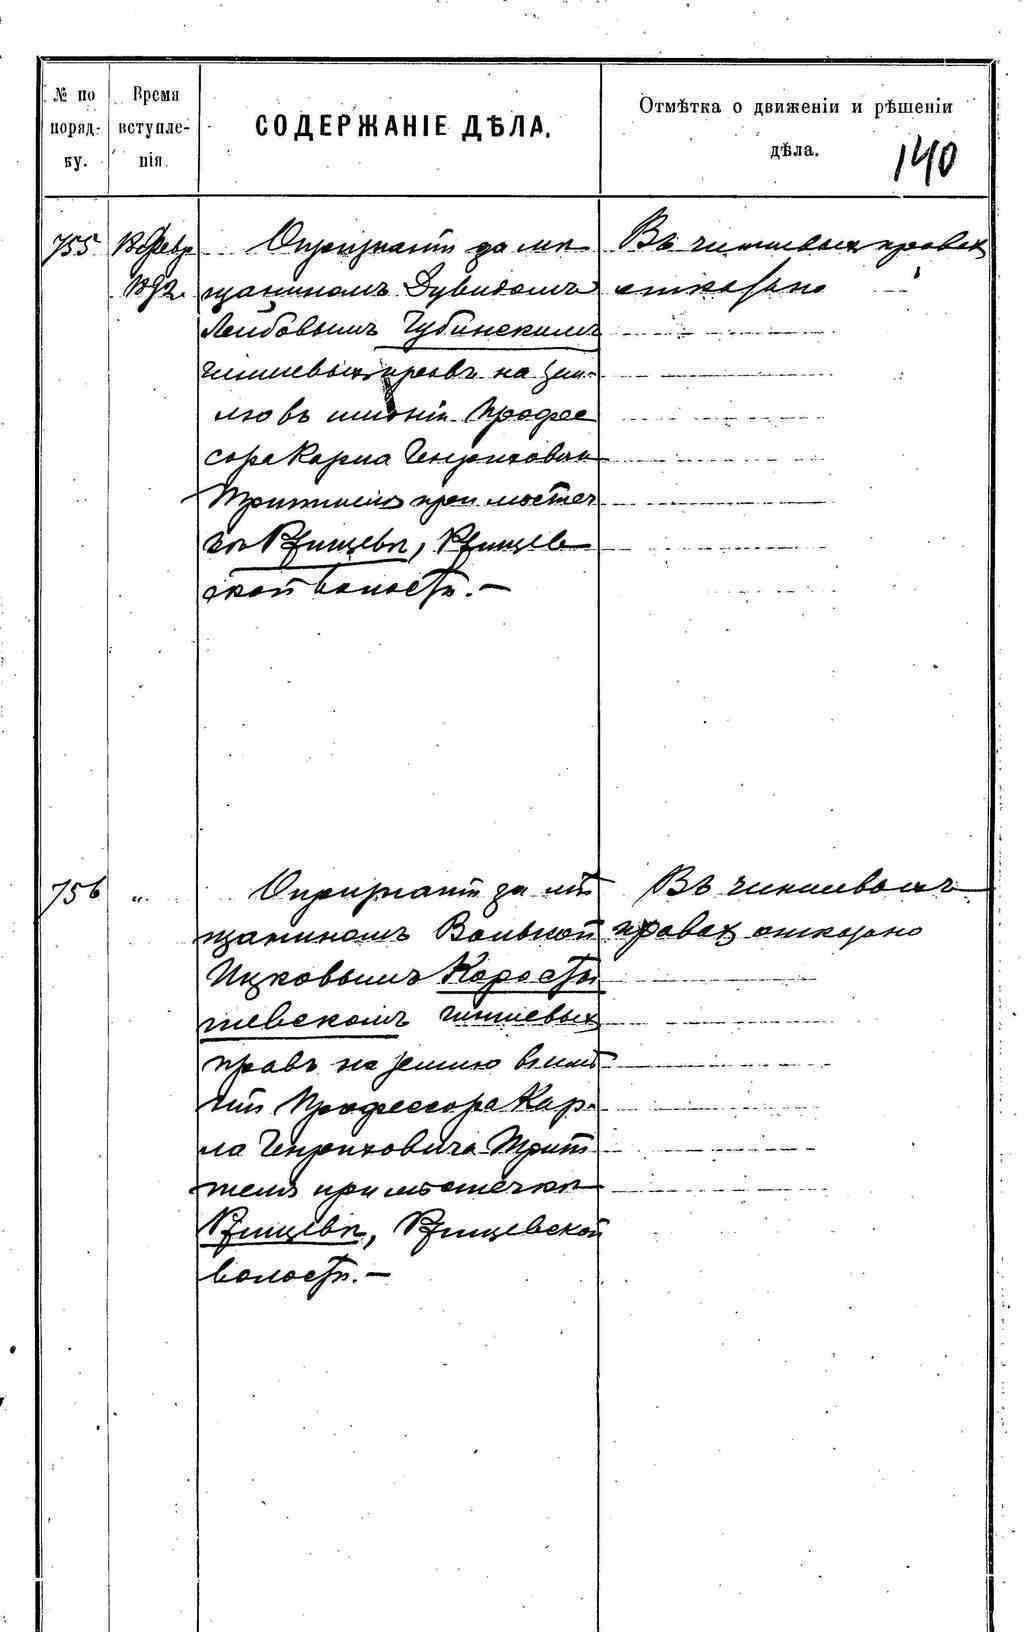 № по поряд- ку.
Время вступле- нія.
СОДЕРЖАНІЕ ДѢЛА.
Отмѣтка о движеніи и рѣшеніи дѣла.
140
755
Февр
1892
О признаніи за мѣ
щаниномъ Дувидомъ
Лейбовымъ Губинскимъ
чиншевыхъ правъ на зем-
лю въ имѣніи Профес
сора Карла Генриховича
Триттель при мѣстеч
кѣ Ржищевѣ, Ржищев
ской волости. —
Въ чиншевыхъ правах
отказано
756
"
О признаніи за мѣ
щаниномъ Волькой
Ицковымъ Коросты
шевскомъ чиншевых
правъ на землю въ имѣ
ніи Профессора Кар-
ла Генриховича Трит
тель при мѣстечкѣ
Ржищевѣ, Ржищевской
волости. —
Въ чиншевыхъ
правах отказано